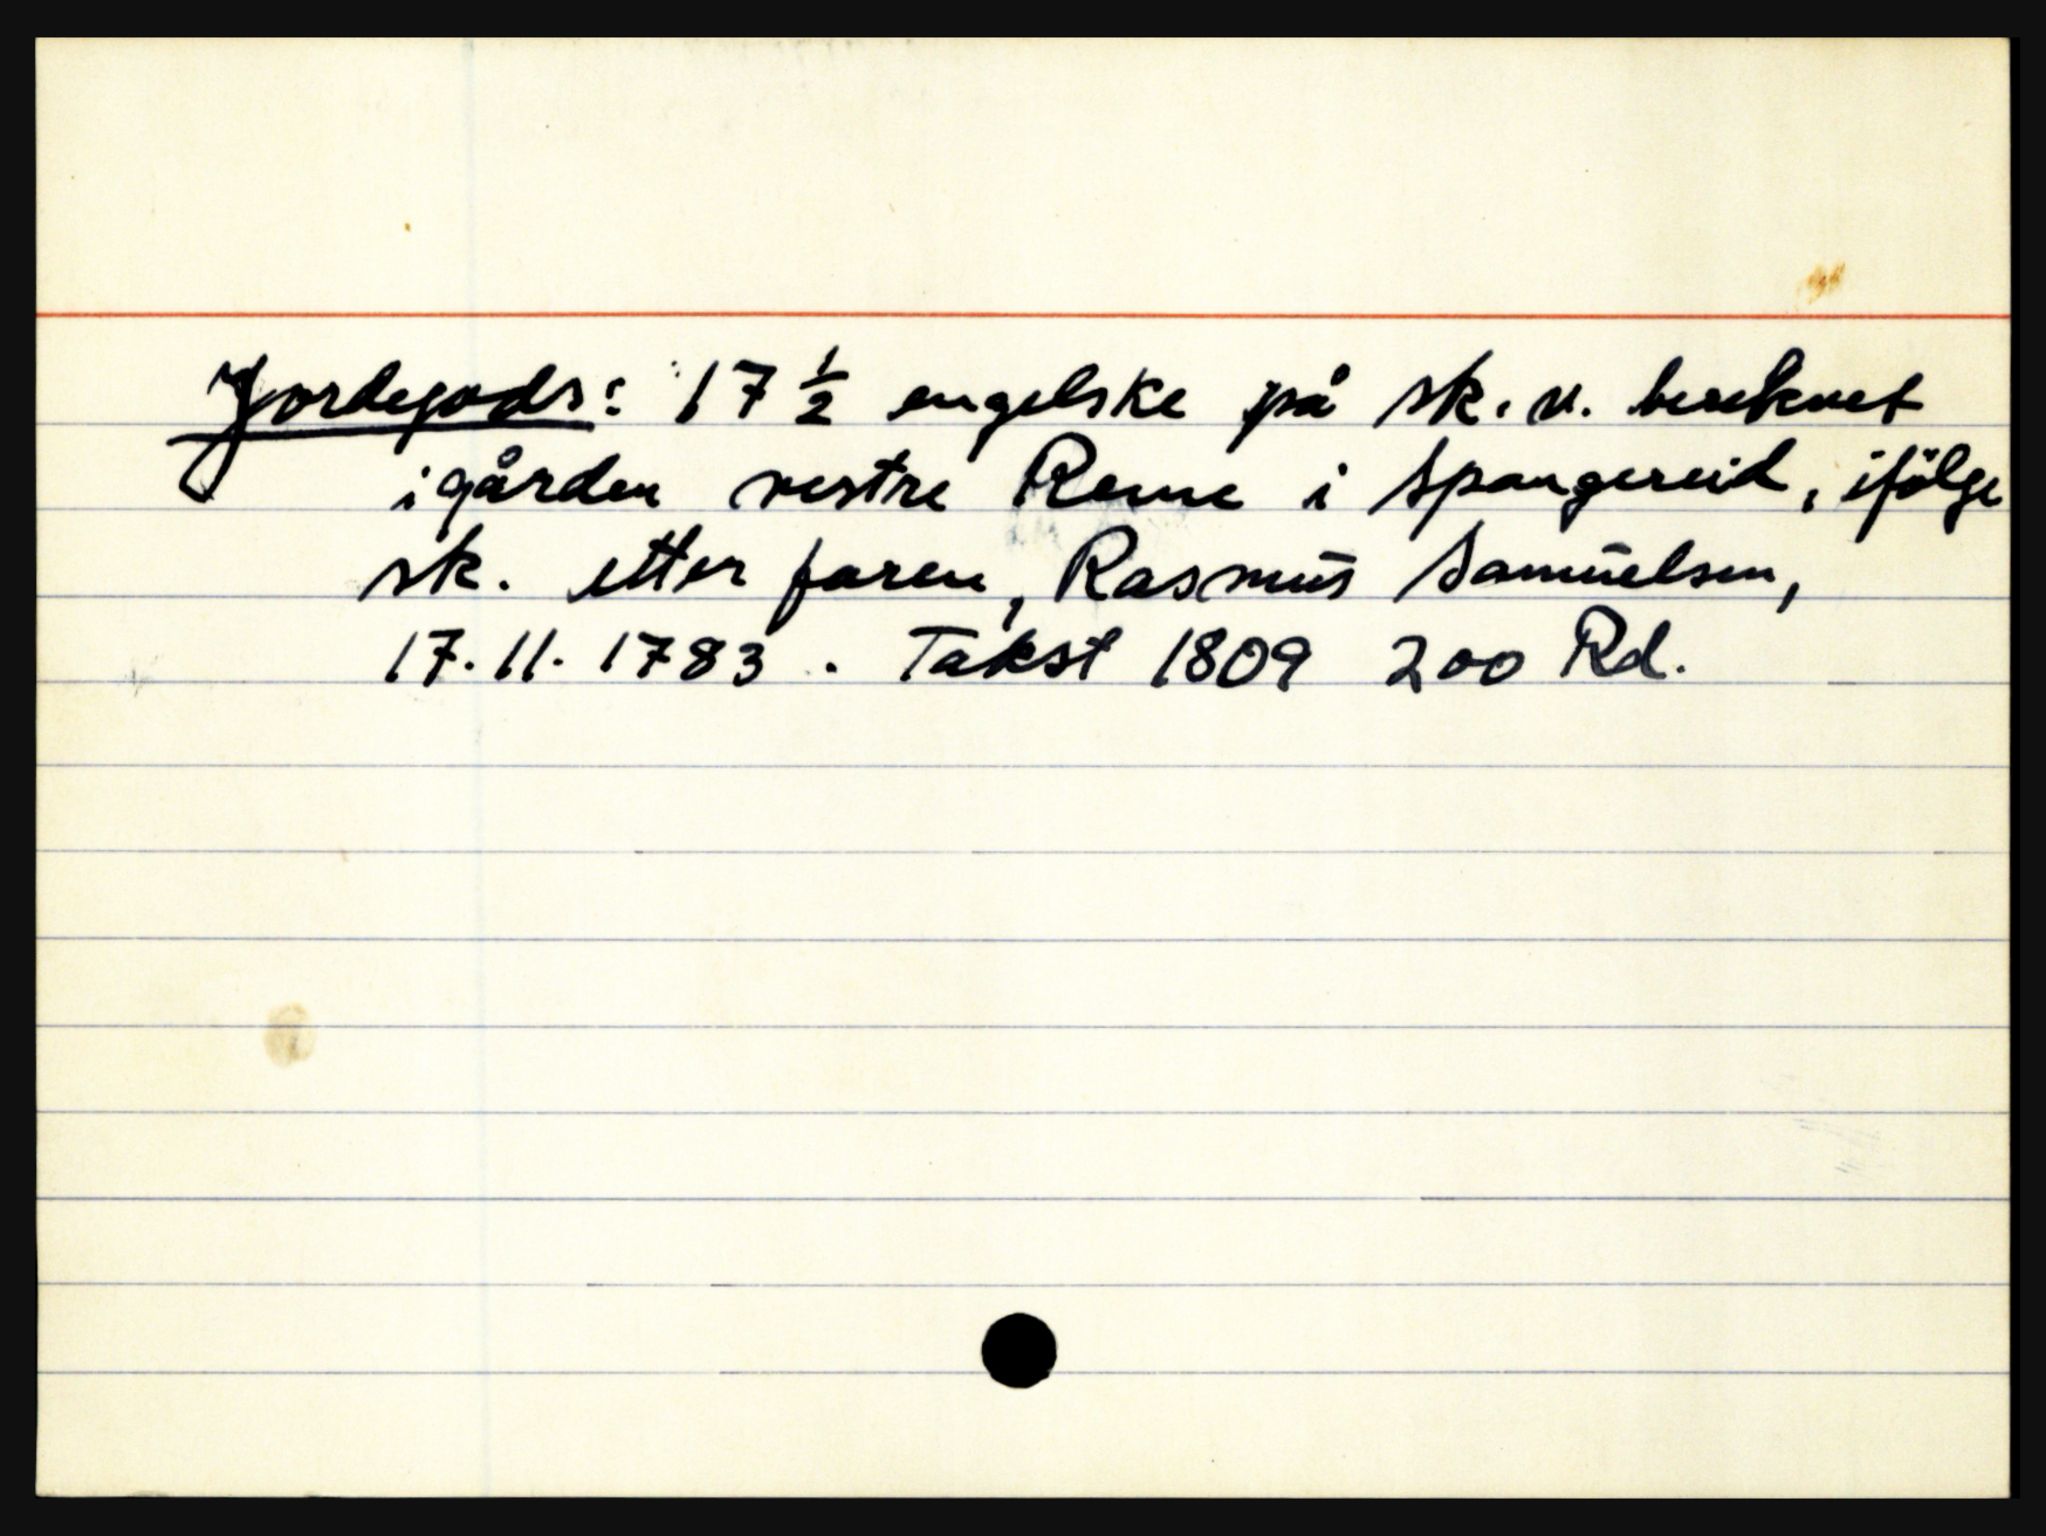 Jordegods: 17 ½ engelske på sk. v. bereknet
i gården vestre Reme i Spangereid, ifölge
sk. etter faren, Rasmus Samuelsen,
17.11.1783. Takst 1809 200 Rd.